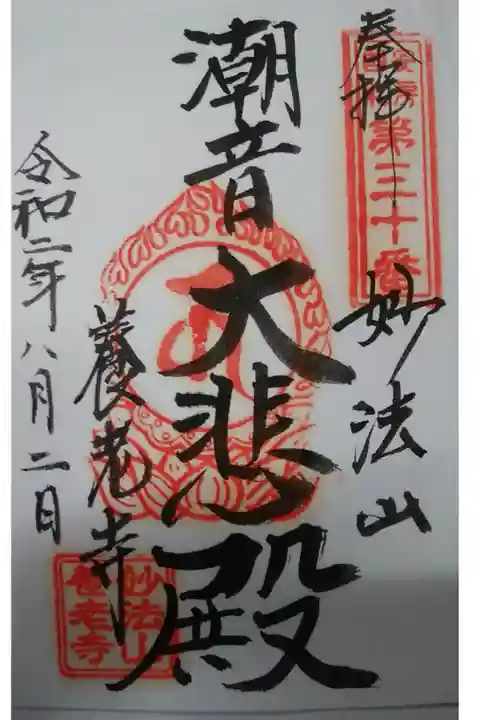 奉拝
安房第三十番
妙法山
潮音
大悲殿
養老寺
令和二年八月二日
妙法山
養老寺